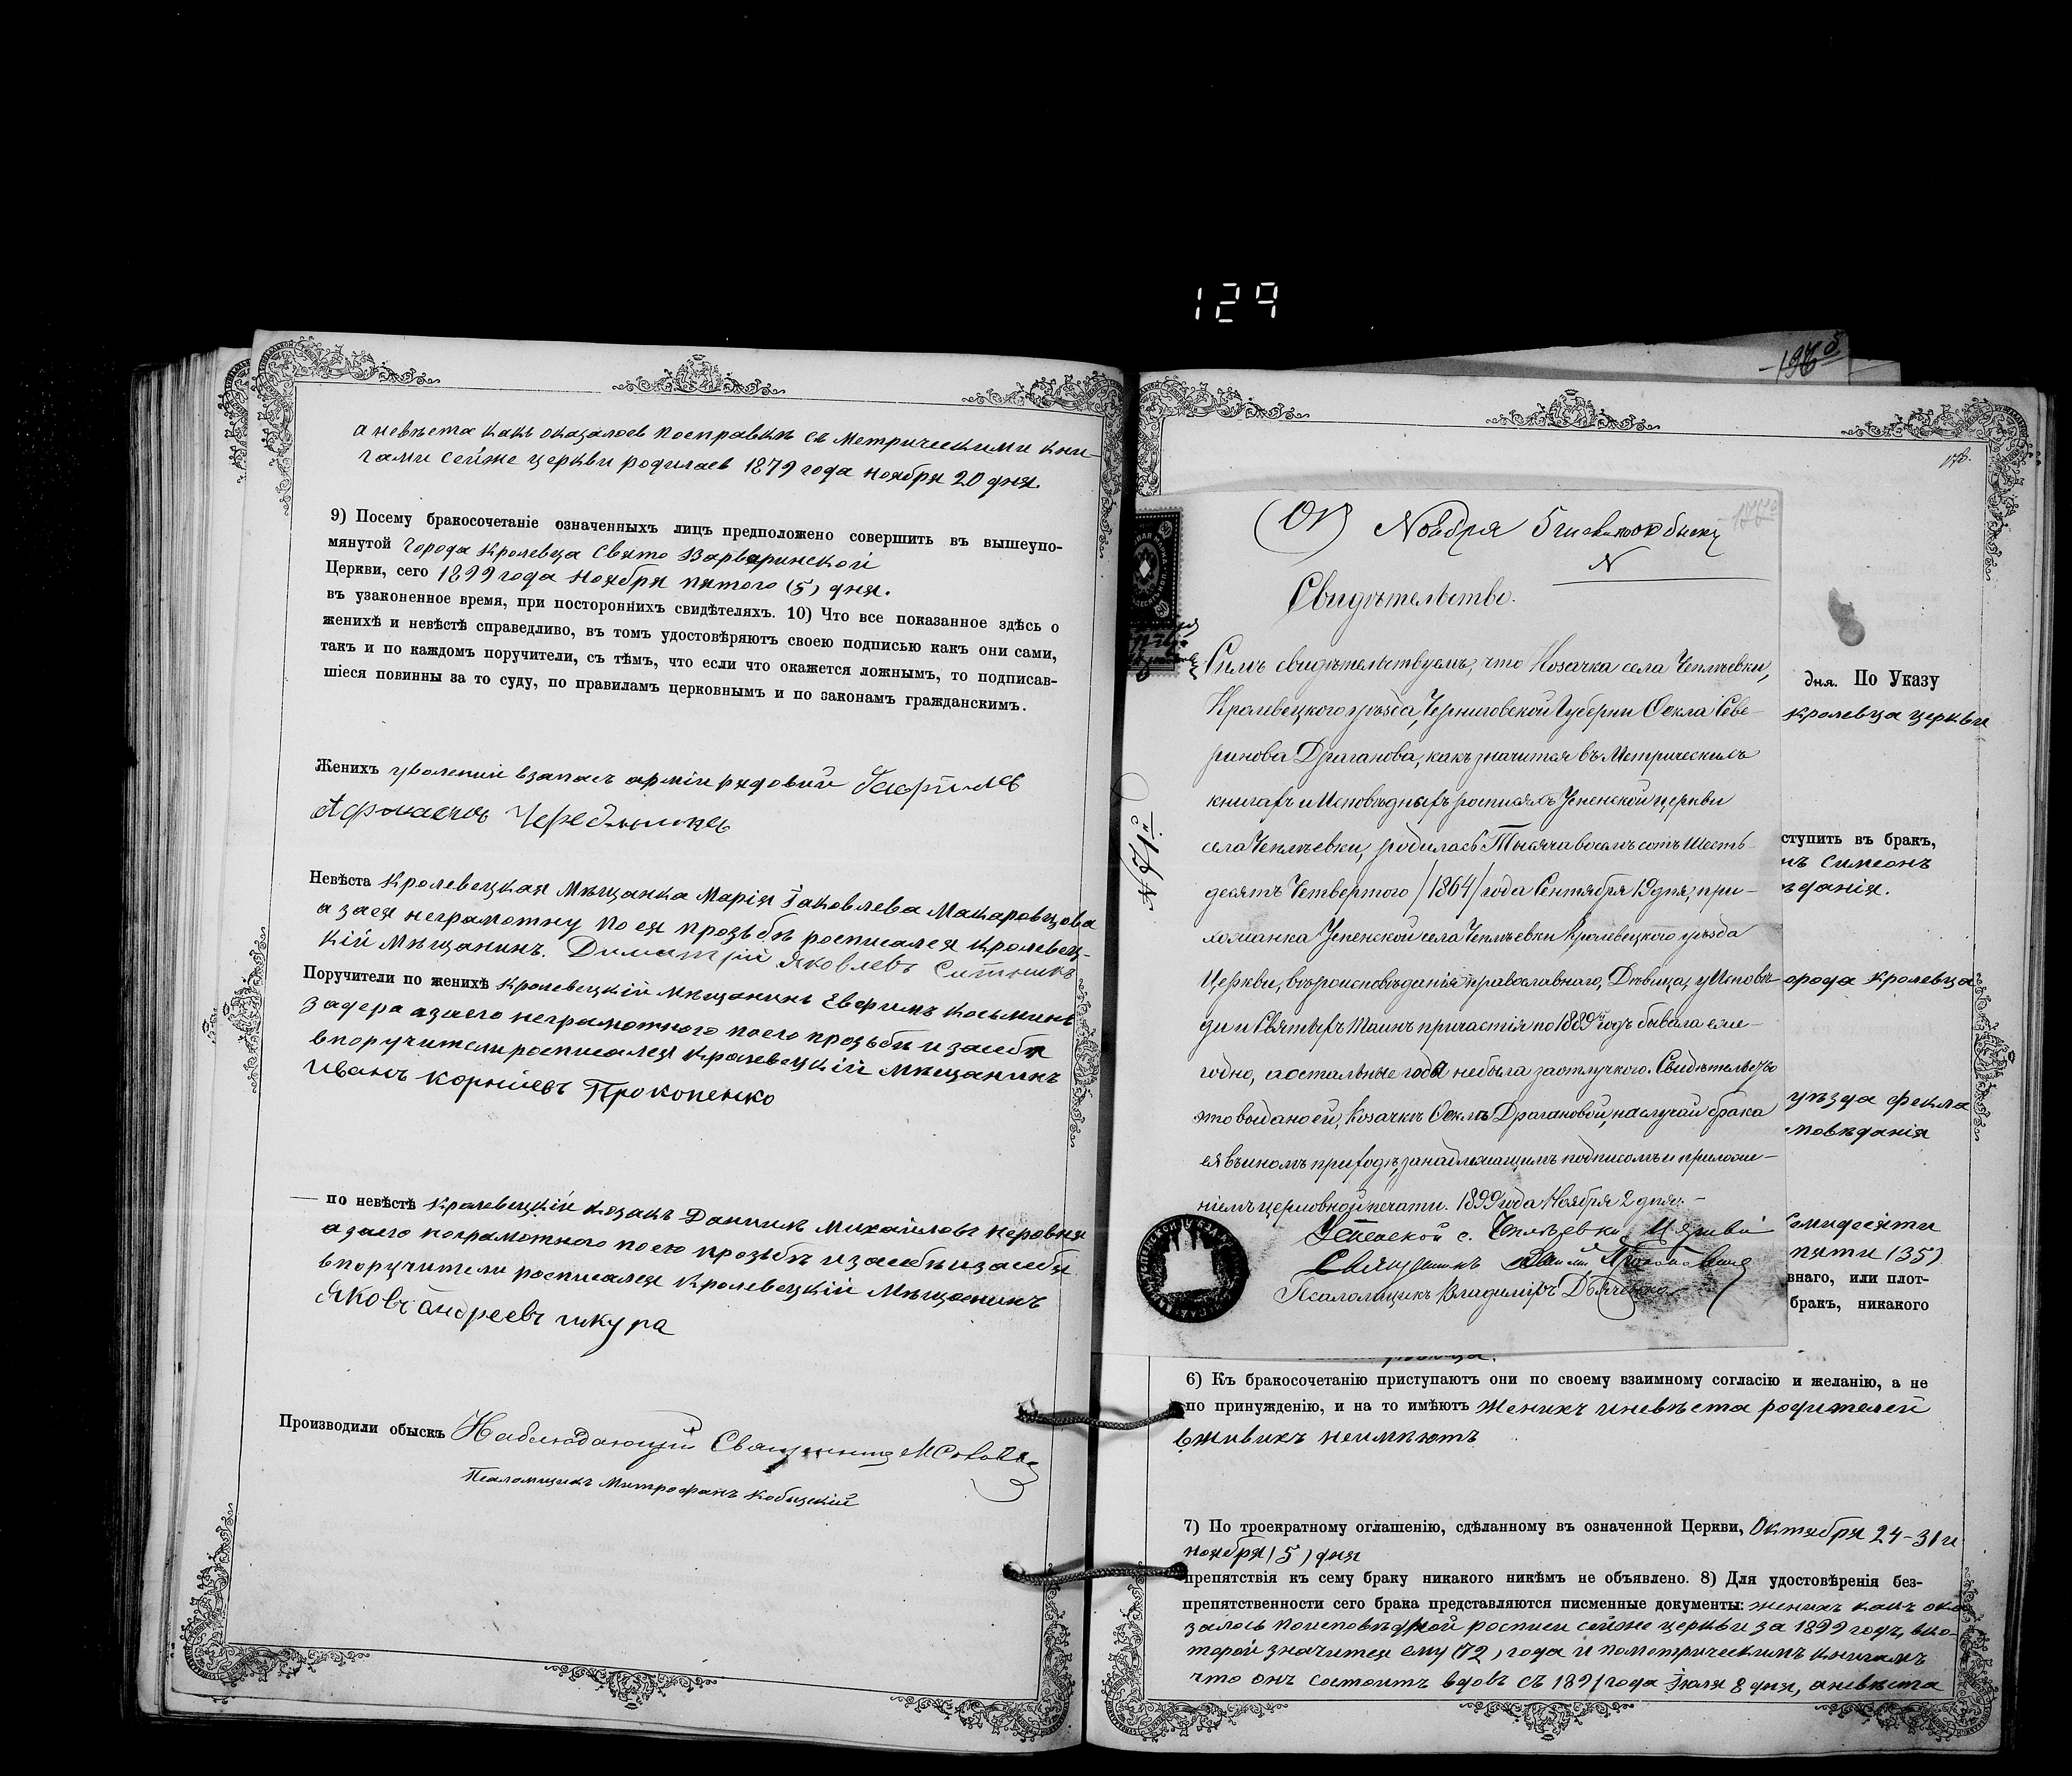 129
а невѣста какъ оказалось посправкѣ съ метрическими кни-
гами сейже церкви родилась 1879 года ноября 20 дня.
9) Посему бракосочетаніе означенныхъ лицъ предположено совершить въ вышеупо-
мянутой города Кролевца Свято Варваринской
Церкви, сего 1899 года ноября пятого (5) дня.
въ узаконенное время, при постороннихъ свидѣтеляхъ. 10) Что все показанное здѣсь о
женихѣ и невѣстѣ справедливо, въ томъ удостовѣряютъ своею подписью какъ они сами,
такъ и по каждомъ поручители, съ тѣмъ, что если что окажется ложнымъ, то подписав-
шіеся повинны за то суду, по правиламъ церковнымъ и по законамъ гражданскимъ.
Женихъ уволеный взапасъ арміи рядовой
Невѣста Кролевецкая Мѣщанка Марія Іаковлева Макаровцова
а заея неграмотну по ея прозьбѣ росписался Кролевец-
кій Мѣщанинъ. Димитрій Яковлевъ
Поручители по женихѣ Кролевецкій Мѣщанинъ Евфимъ Косьминъ
Задера азаего неграмотного поего прозьбѣ и засебя
впоручители росписался Кролевецкій Мѣщанинъ
Иванъ Корніевъ Прокопенко
— по невѣстѣ Кролевецкій козакъ Даніилъ Михаиловъ
азаего неграмотного поего прозьбѣ изасебѣ изасебя
впоручители росписался Кролевецкій Мѣщанинъ
Яковъ андреевъ шкура
Производили обыскъ Наблюдающій Священникъ
Псаломщикъ Митрофанъ Кобыцкій
196 б
178.
Ноября 5
N
Свидѣтельство.
Симъ свидѣтельствуемъ, что Козачка села Чеплѣевки,
Кролевецкого уѣзда, Черниговской Губерніи Ѳекла Севе-
ринова Драганова, какъ значится въ Метрическихъ
книгахъ и Исповѣдныхъ росписяхъ Успенской церкви
села Чеплѣевки, родилась Тысяча восемъ сотъ Шесть-
десятъ Четвертого /1864/ года Сентября 19 дня, при-
хожанка Успенской села Чеплѣевки Кролевецкого уѣзда
Церкви, вѣроисповѣданія православнаго, Дѣвица, у Исповѣ-
ди и Святыхъ Таинъ причастія по 1889й годъ бывала еже-
годно, аостальные года небыла заотлучкою. Свидѣтельство
это выдано ей, Козачкѣ Ѳеклѣ Драгановой, наслучай брака
ея въиномъ приходѣ, занадлежащимъ подписомъ и приложе-
ніемъ церковной печати. 1899 года Ноября 2 дня. –
Успенской с. Чеплѣевки Церкви
Священникъ
Псаломщикъ Владиміръ Дьяченко
дня. По Указу
Кролевца церкви
ступить въ бракъ,
Симеонъ
ѣданія.
орода Кролевца
уѣзда Фекла
повѣданія
Семидесяти
пяти (35)
внаго, или плот-
бракъ, никакого
6) Къ бракосочетанію приступаютъ они по своему взаимному согласію и желанію, а не
по принужденію, и на то имѣютъ Женихъ иневѣста родителей
вживихъ неимѣютъ
7) По троекратному оглашенію, сдѣланному въ означенной Церкви, Октября 24-31 и
ноября (5) дня
препятствія къ сему браку никакого никѣмъ не объявлено. 8) Для удостовѣренія без-
препятственности сего брака представляются писменные документы: женихъ какъ ока
залось поисповѣдной росписи сейже церкви за 1899 годъ, вко-
торой значится ему (72) года и пометрическимъ книгамъ
что онъ состоитъ вдовъ съ 1891 года Іюля 8 дня, аневѣста